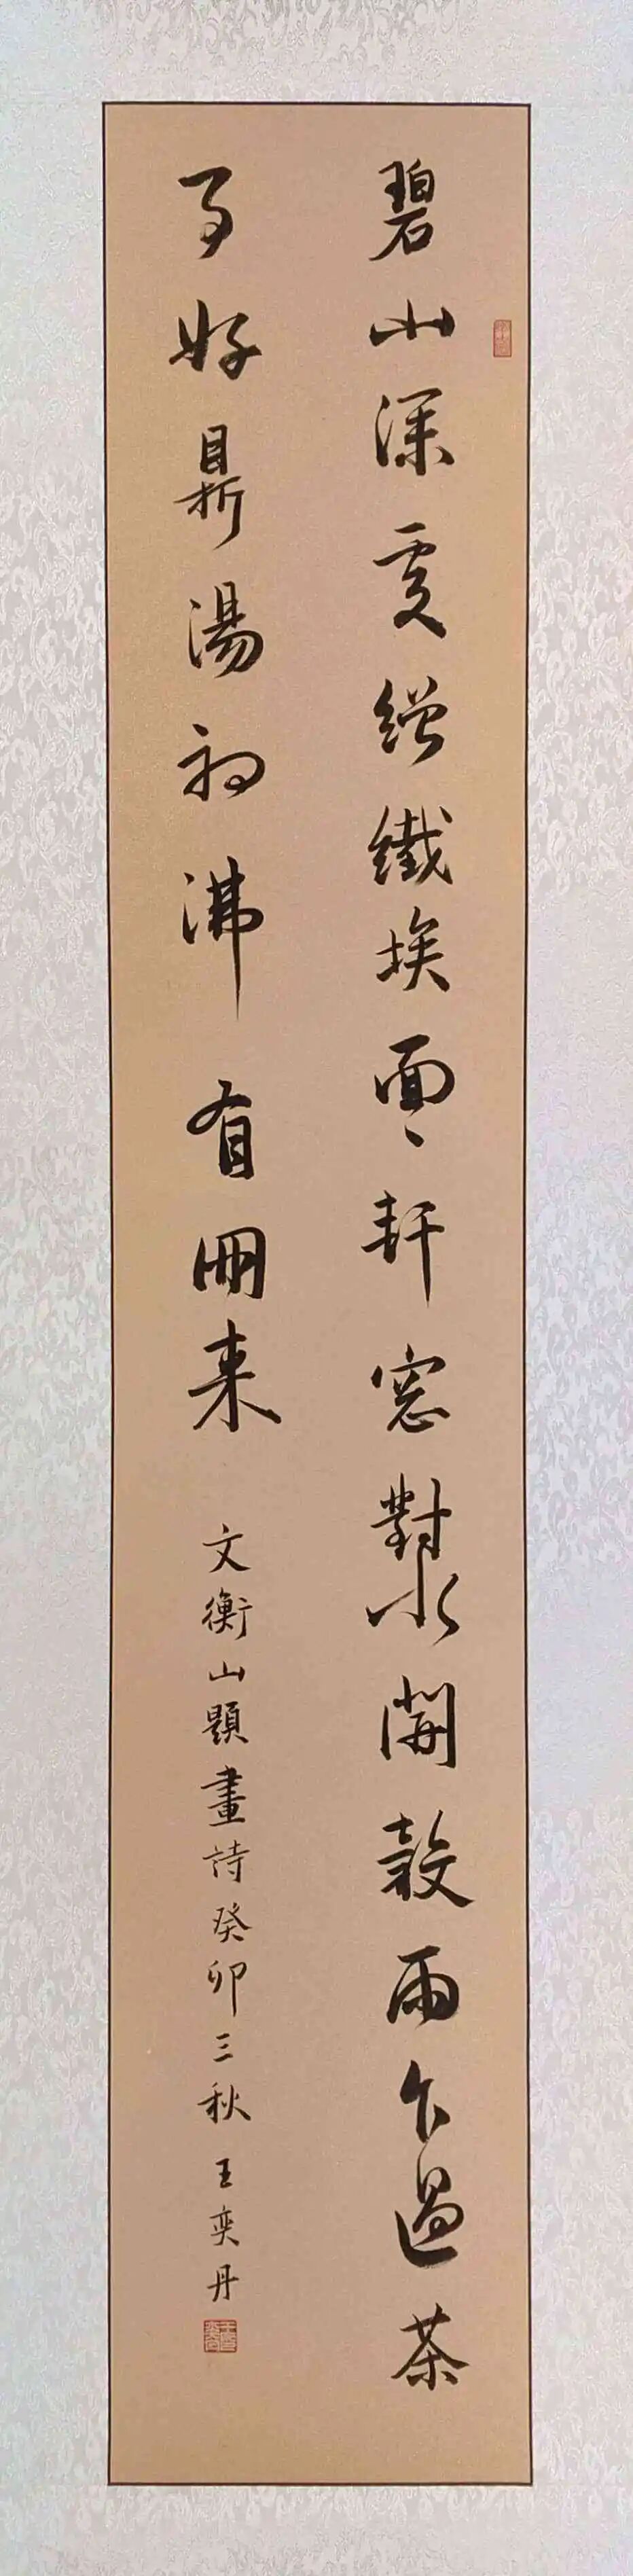 碧山深處繒纖埃面〻軒窓對水開穀雨乍過茶
事好鼎湯初沸有朋来
文衡山題畫詩癸卯三秋王奕丹